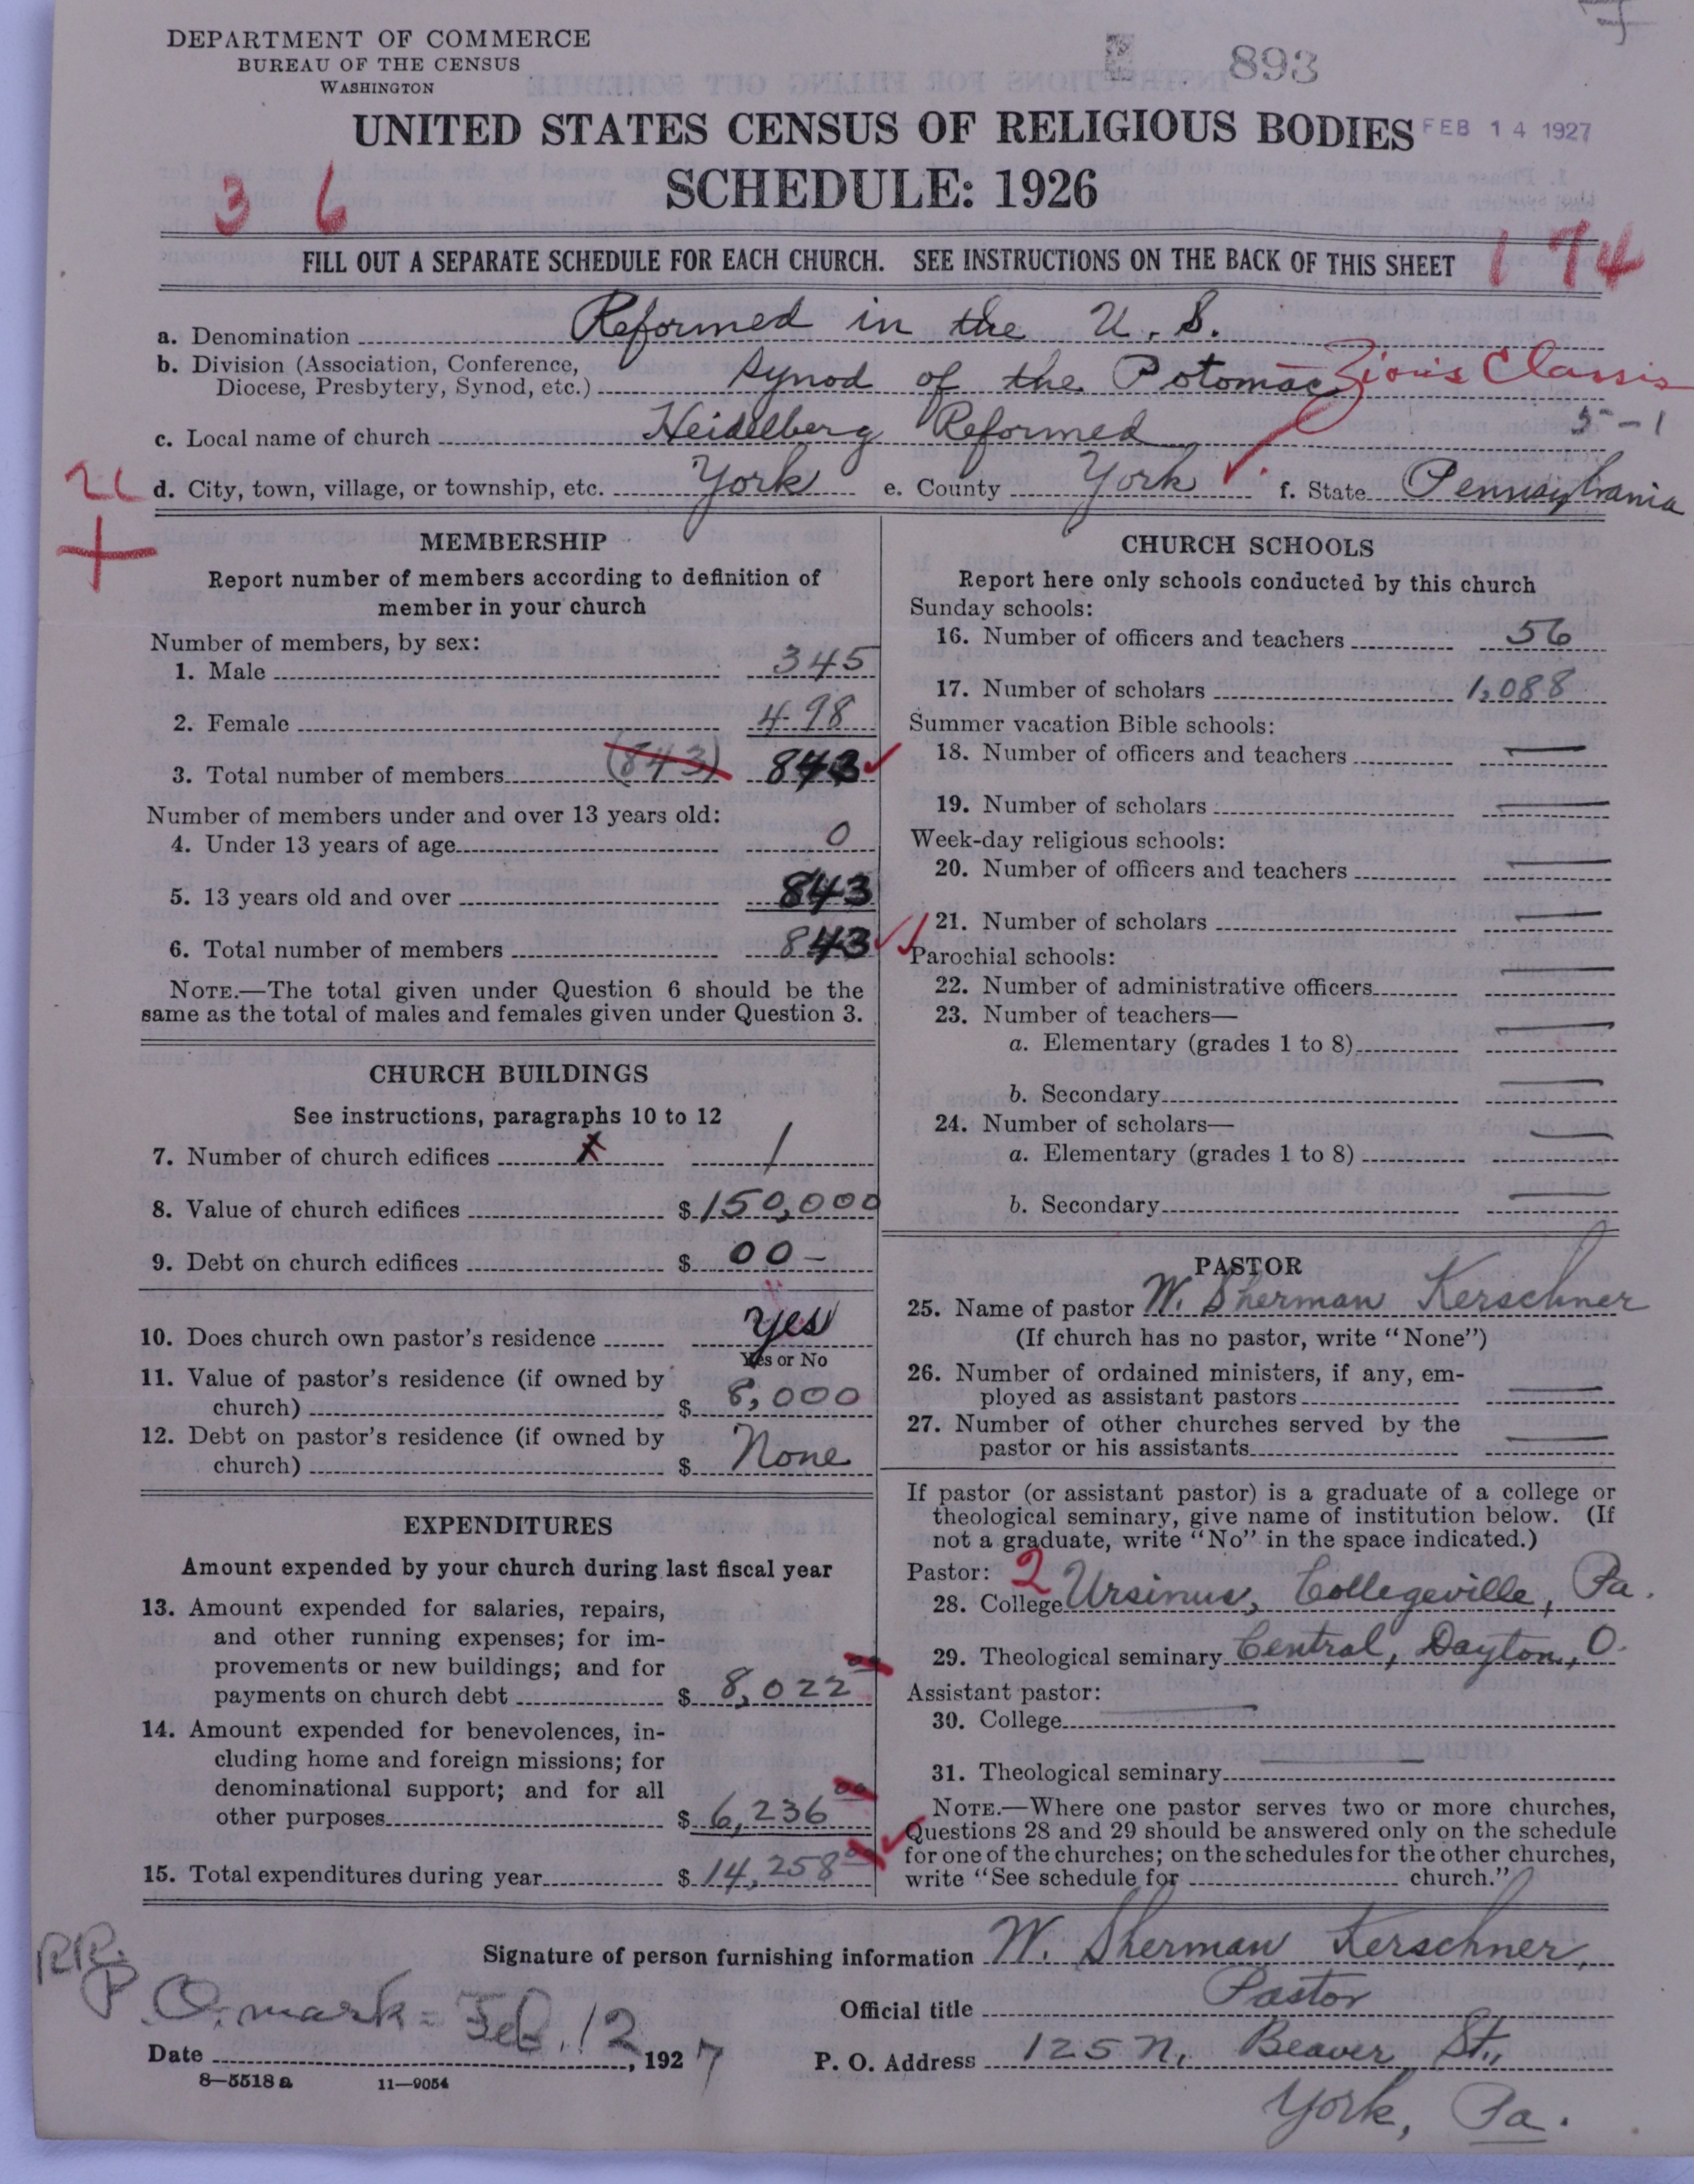 DEPARTMENT OF COMMERCE
BUREAU OF THE CENSUS
WASHINGTON
893
UNITED STATES CENSUS OF RELIGIOUS BODIES
FEB 14 1927
SCHEDULE: 1926
3 6
FILL OUT A SEPARATE SCHEDULE FOR EACH CHURCH. SEE INSTRUCTIONS ON THE BACK OF THIS SHEET
174
a. Denomination Reformed in the U. S.
b. Division (Association, Conference,
Diocese, Presbytery, Synod, etc.) Synod of the Potomac Zion's Classis
c. Local name of church Heidelberg Reformed 5-1
d. City, town, village, or township, etc. York e. County York f. State Pennsylvania
MEMBERSHIP
Report number of members according to definition of
member in your church
Number of members, by sex:
1. Male 345
2. Female 498
3. Total number of members (843) 843
Number of members under and over 13 years old:
4. Under 13 years of age 0
5. 13 years old and over 843
6. Total number of members 843
NOTE.—The total given under Question 6 should be the
same as the total of males and females given under Question 3.
CHURCH BUILDINGS
See instructions, paragraphs 10 to 12
7. Number of church edifices 1
8. Value of church edifices $ 150,000
9. Debt on church edifices $ 00-
10. Does church own pastor's residence Yes
Yes or No
11. Value of pastor's residence (if owned by
church) $ 8,000
12. Debt on pastor's residence (if owned by
church) $ None
EXPENDITURES
Amount expended by your church during last fiscal year
13. Amount expended for salaries, repairs,
and other running expenses; for im-
provements or new buildings; and for
payments on church debt $ 8,022 00
14. Amount expended for benevolences, in-
cluding home and foreign missions; for
denominational support; and for all
other purposes $ 6,236 00
15. Total expenditures during year $ 14,258 00
CHURCH SCHOOLS
Report here only schools conducted by this church
Sunday schools:
16. Number of officers and teachers 56
17. Number of scholars 1,088
Summer vacation Bible schools:
18. Number of officers and teachers —
19. Number of scholars —
Week-day religious schools:
20. Number of officers and teachers —
21. Number of scholars —
Parochial schools:
22. Number of administrative officers —
23. Number of teachers—
a. Elementary (grades 1 to 8) —
b. Secondary —
24. Number of scholars—
a. Elementary (grades 1 to 8) —
b. Secondary —
PASTOR
25. Name of pastor W. Sherman Kerschner
(If church has no pastor, write "None")
26. Number of ordained ministers, if any, em-
ployed as assistant pastors —
27. Number of other churches served by the
pastor or his assistants —
If pastor (or assistant pastor) is a graduate of a college or
theological seminary, give name of institution below. (If
not a graduate, write "No" in the space indicated.)
Pastor: 2
28. College Ursinus, Collegeville, Pa.
29. Theological seminary Central, Dayton, O.
Assistant pastor:
30. College —
31. Theological seminary —
NOTE.—Where one pastor serves two or more churches,
Questions 28 and 29 should be answered only on the schedule
for one of the churches; on the schedules for the other churches,
write "See schedule for church."
Signature of person furnishing information W. Sherman Kerschner,
Official title Pastor
RR.
P.O. mark - Feb. 12
Date , 1927
P. O. Address 125 N. Beaver St.,
York, Pa.
8—5518 a 11—9054